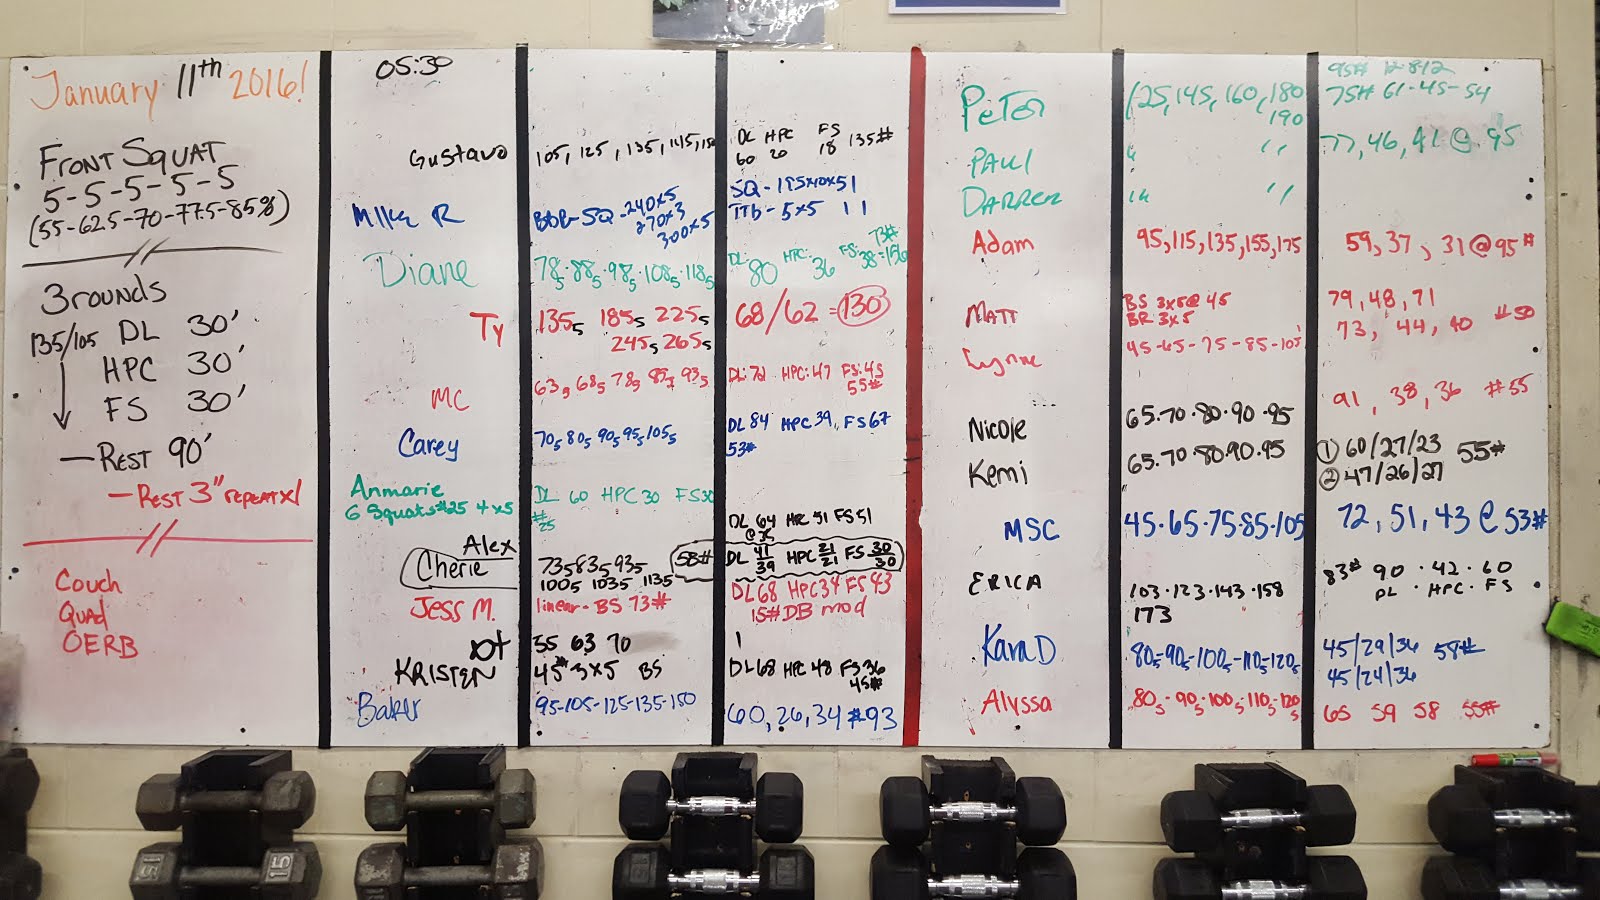 January 11th 2016!
FRONT SQUAT
5-5-5-5-5
(55-62.5-70-77.5-85%)
3 rounds
135/105 DL 30'
HPC 30'
FS 30'
— REST 90'
— REST 3" REPEAT x1
Couch
Quad
OERB
05:30
Gustavo
105, 125, 135, 145, 150
DL HPC FS 135#
60 20 18
Mike R
SQ - 240x5
270x3
300x5
5x5 11
Diane
785 · 885 · 985 · 1085 · 1185
DL: 80 HPC: 36 FS: 38 =
73#
Ty
1355 1855 2255
2455 2655
68/62 = 130
MC
635 685 785 935
DL: 72 HPC: 47 FS: 45
55#
Carey
705 805 905 955 1055
DL 84 HPC 39, FS 67
53#
Anmarie
6 Squats #25 4x5
DL 60 HPC 30 FS 30
#25
Alex
DL 64 HPC 51 FS 51
Cherie
735 835 935
1005 1035 1135
58#
DL 41/39 HPC 21/21 FS 30/30
Jess M.
linear - BS 73#
DL 68 HPC 34 FS 43
15# DB mod
55 63 70
KRISTEN
45# 3x5 BS
DL 68 HPC 48 FS 36
45#
Baker
95-105-125-135-150
60, 26, 34 #93
Peter
125, 145, 160, 180
190
95# 12-8-12
75# 61-45-54
PAUL
" "
77, 46, 41 @ 95
DARREN
" "
Adam
95, 115, 135, 155, 175
59, 37, 31 @ 95#
MATT
BS 3x5 @ 45
BR 3x5
79, 48, 71
73, 44, 40 #50
Lynne
45-65-75-85-105
91, 38, 36 #55
Nicole
65·70·80·90·95
Kemi
65·70·80·90·95
① 60/27/23 55#
② 47/26/27
MSC
45·65·75·85·105
72, 51, 43 @ 53#
ERICA
103·123·143·158
173
83# 90 · 42 · 60
DL · HPC · FS
Kara D
805-905-1005-1105-1205
45/29/36 58#
45/24/36
Alyssa
805 - 905 - 1005 - 1105 - 1205
65 59 58 55#
15
15